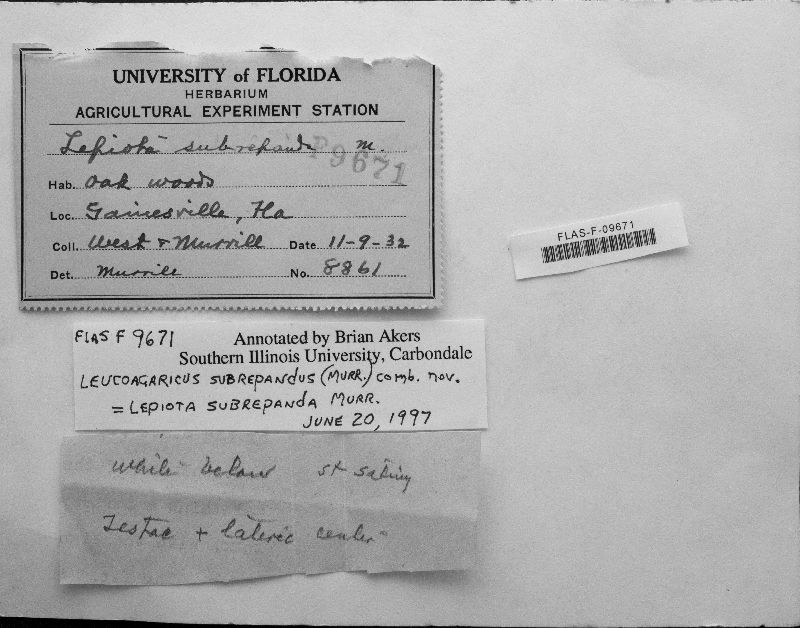 UNIVERSITY of FLORIDA
HERBARIUM
AGRICULTURAL EXPERIMENT STATION
Lepiota subrepanda M.
F9671
Hab. Oak woods
Loc. Gainesville, Fla
Coll. West & Murrill Date 11-9-32
Det. Murrill No. 8861
FLAS-F-09671
FLAS F 9671 Annotated by Brian Akers
Southern Illinois University, Carbondale
LEUCOAGARICUS SUBREPANDUS (MURR.) comb. nov.
= LEPIOTA SUBREPANDA MURR.
JUNE 20, 1997
white below st satiny
Testac + lateric center